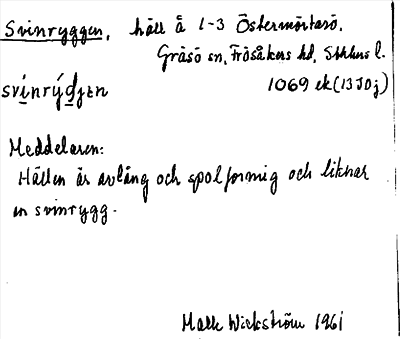 Svinryggen, häll å 1-3 Östermörtarö.
Gräsö sn, Frösåkers hd, Sthlms l.
svínrýdjen 1069 ek (13J0j)
Meddelaren:
Hällen är avlång och spolformig och liknar
en svinrygg.
Malte Wickström 1961